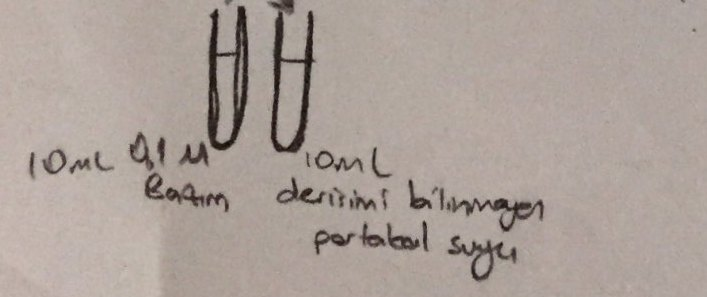 10mL 0,1 M
Bazım
10mL
derisimi bilinmeyen
portakal suyu